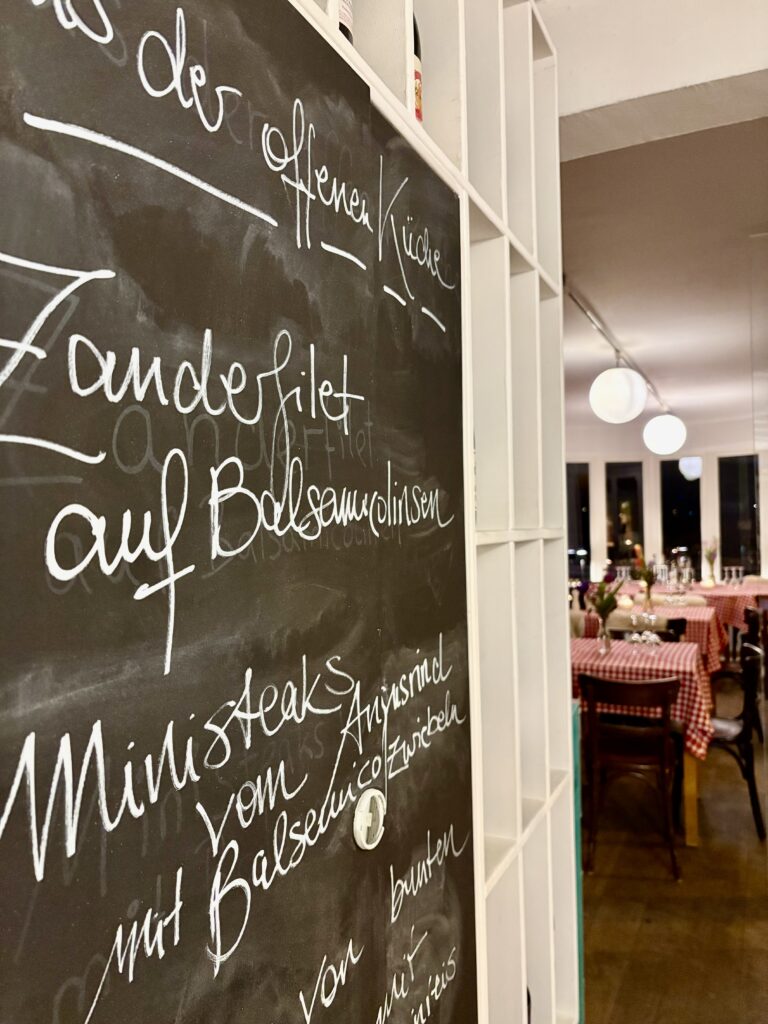 der offenen Küche
Zanderfilet
auf Balsamicolinsen
Ministeaks
vom Angusrind
mit Balsamicozwiebeln
von bunten
mit